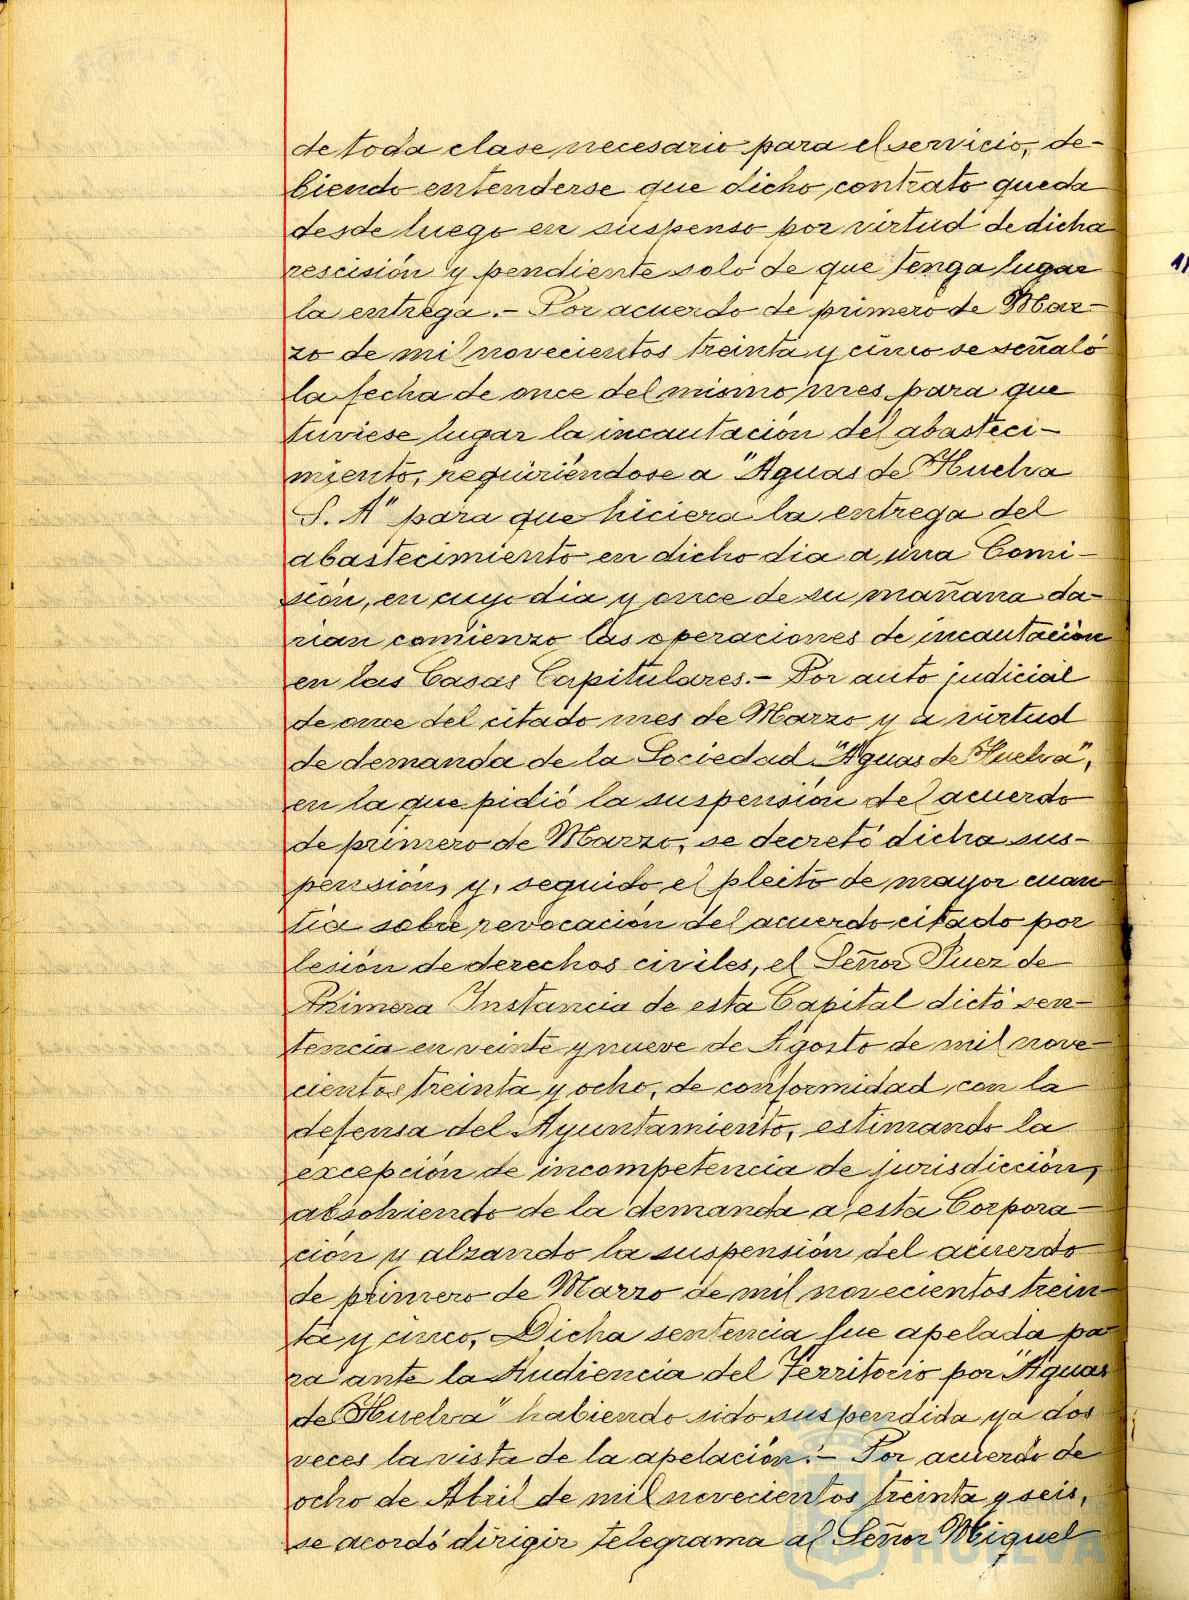 de toda clase necesario para el servicio, de-
biendo entenderse que dicho contrato queda
desde luego en suspenso por virtud de dicha
rescisión y pendiente solo de que tenga lugar
la entrega.- Por acuerdo de primero de Mar-
zo de mil novecientos treinta y cinco se señaló
la fecha de once del mismo mes para que
tuviese lugar la incautación del abasteci-
miento, requiriéndose a "Aguas de Huelva
S. A" para que hiciera la entrega del
abastecimiento en dicho dia a una Comi-
sión, en cuyo dia y once de su mañana da-
rian comienzo las operaciones de incautación
en las Casas Capitulares.- Por auto judicial
de once del citado mes de Marzo y a virtud
de demanda de la Sociedad "Aguas de Huelva",
en la que pidió la suspensión del acuerdo
de primero de Marzo, se decretó dicha sus-
pensión, y, seguido el pleito de mayor cuan
tia sobre revocación del acuerdo citado por
lesión de derechos civiles, el Señor Juez de
Primera Instancia de esta Capital dictó sen-
tencia en veinte y nueve de Agosto de mil nove-
cientos treinta y ocho, de conformidad con la
defensa del Ayuntamiento, estimando la
excepción de incompetencia de jurisdicción,
absolviendo de la demanda a esta Corpora-
ción y alzando la suspensión del acuerdo
de primero de Marzo de mil novecientos trein-
ta y cinco, Dicha sentencia fue apelada pa
ra ante la Audiencia del Territorio por "Aguas
de Huelva" habiendo sido suspendida ya dos
veces la vista de la apelación.- Por acuerdo de
ocho de Abril de mil novecientos treinta y seis,
se acordó dirigir telegrama al Señor Miguel
HUELVA